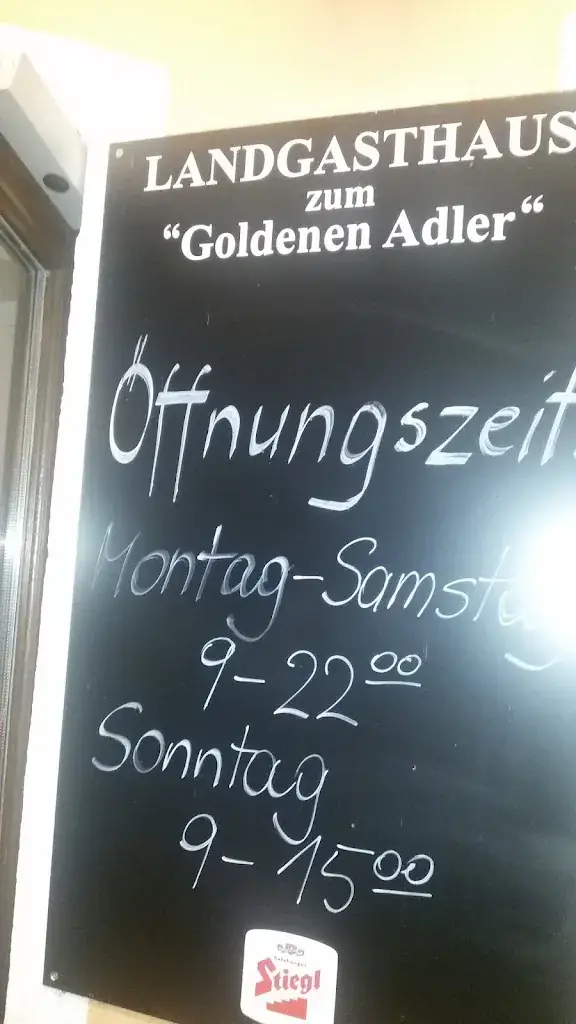 LANDGASTHAUS
zum
“Goldenen Adler“
Öffnungszeit
Montag-Samstag
9-22⁰⁰
Sonntag
9-15⁰⁰
Stiegl